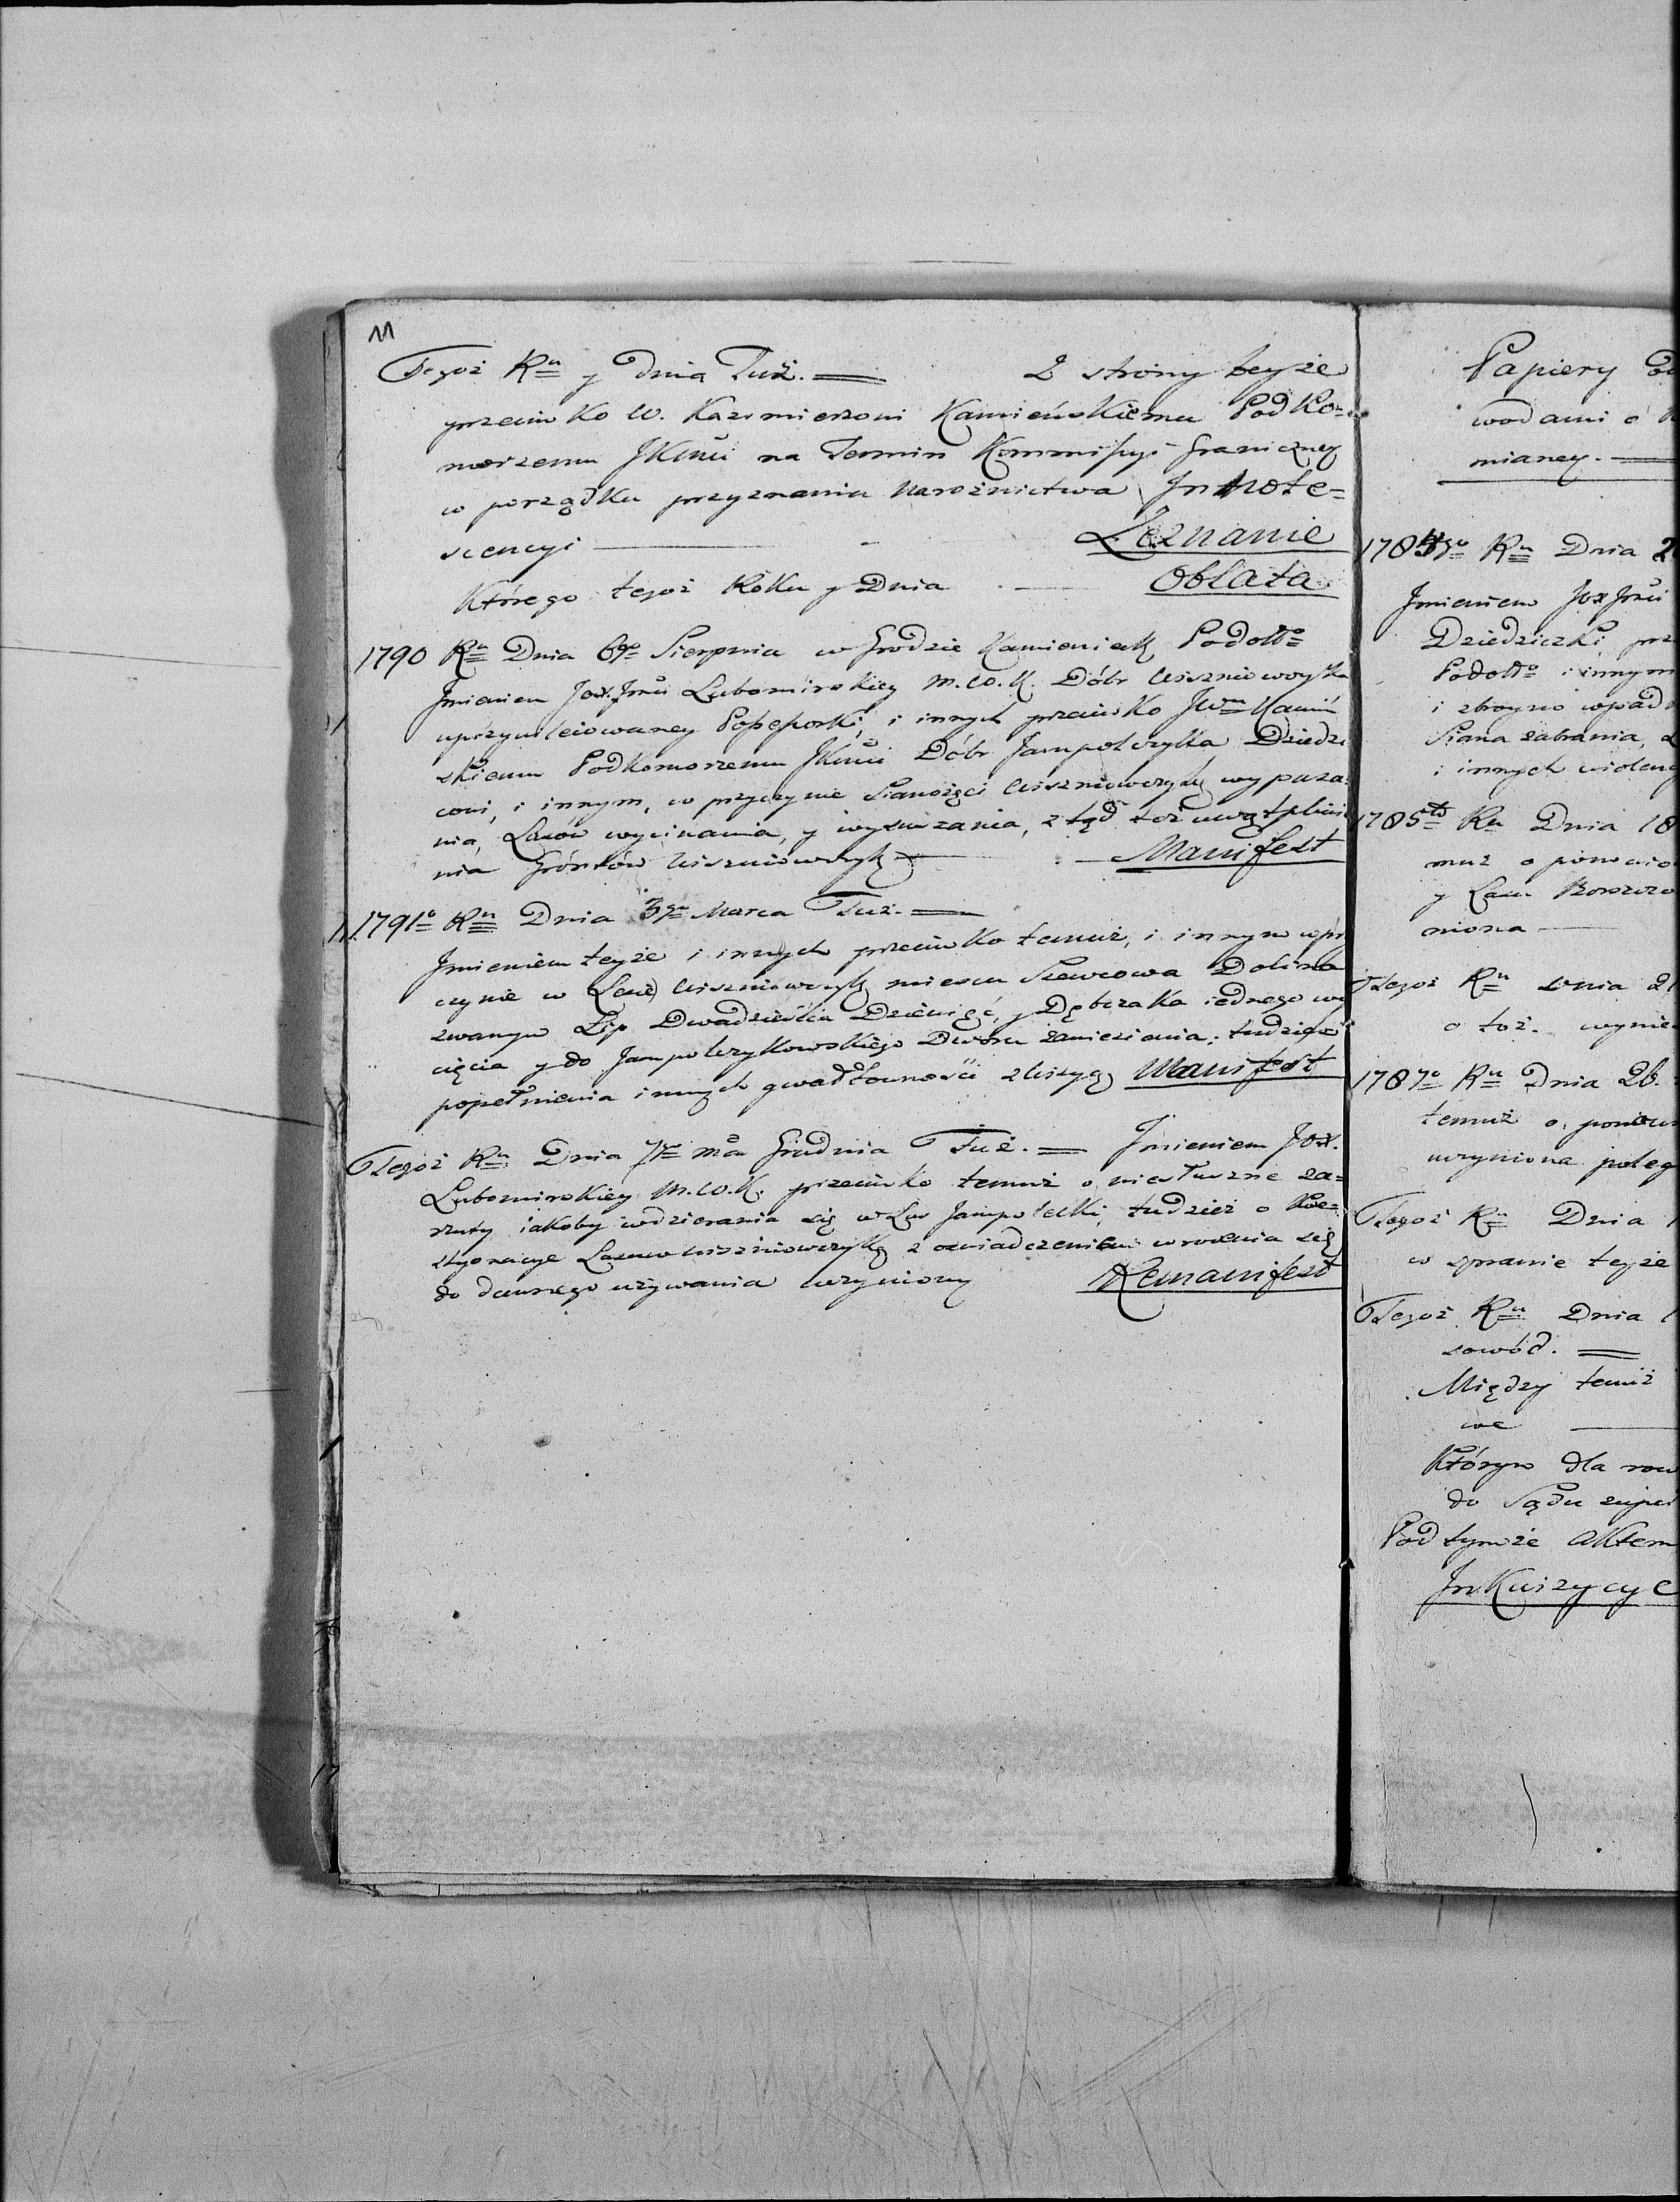 11
Tegoż Ru y Dnia Tuż. = Z strony teyże
przeciwko W. Kazimierzowi Kamieńskiemu Podko=
morzemu JKMci na Termin Kommissyi Graniczney
w porządku przyznania Narożnictwa Innote=
scencyi — Zeznanie
Którego tegoż Roku y Dnia — Oblata.
1790 Ru Dnia 6go Sierpnia w Grodzie Kamienieck Podolo
Imieniem Jox. Jmci Lubomirskiey M. W. K. Dóbr Wiszniowczyka
uprzywileiowaney Possessorki, i innych przeciwko JWmu Kamiń
skiemu Podkomorzemu JKmci Dóbr Jampolczyka Dziedzi
cowi, i innym, w przyczynie Sianożęci Wiszniowczyk wypasa=
nia, Lasów wycinania, y wywożania, ztąd toż uwątpliwie
nia Gróntów Wiszniowczyk — Manifest
1791o Ru Dnia 3go Marca Tuż. =
Imieniem teyże i innych przeciwko temuż, i innym w przy
czynie w Lesie Wiszniowczyk miescu Szewcowa Dolina
zwanym Lip Dwadzieścia Dziewięć, y Dębczaka iednego wy
cięcia y do Jampolczykowskiego Dworu zawiezienia; tudzież
popełnienia innych gwałtowności zaszły Manifest
Tegoż Ru Dnia 7go mca Grudnia Tuż. = Imieniem Jox.
Lubomirskiey M. W. K. przeciwko temuż o niesłuszne za=
rzuty iakoby wdzierania się w Las Jampolecki, tudzież o
Lasuw Wiszniowczyk z oswiadczeniem wrocenia się
do dawnego używania uczyniony Remanifest
Papiery
wodami o
mianey. —
1784go Ru Dnia 2
Imieniem Jox Jmci
Dziedziczki, prz
Podolo i innym
i zbroyno wpad
Siana zabrania,
i innych violen
1785to Ru Dnia 18
muż o ponowio
y Lasu
niona —
Tegoż Ru Dnia 21
o toż. wynie
1787o Ru Dnia 26.
temuż o, ponow
uczyniona poleg
Tegoż Ru Dnia 1
w sprawie teyże
Tegoż Ru Dnia 1
sowód. =
Między temiż
we —
Którym dla
do Sądu
Pod tymże Aktem
Inkwizycye